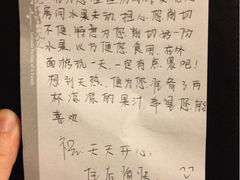 房间水果未动,担心您削切
不便,特意为您削切好一份
水果,以方便您食用。在外
面游玩一天,一定有点累吧!
想到天热,便为您准备了两
杯冰凉的果汁,希望您能
喜欢。
祝:天天开心